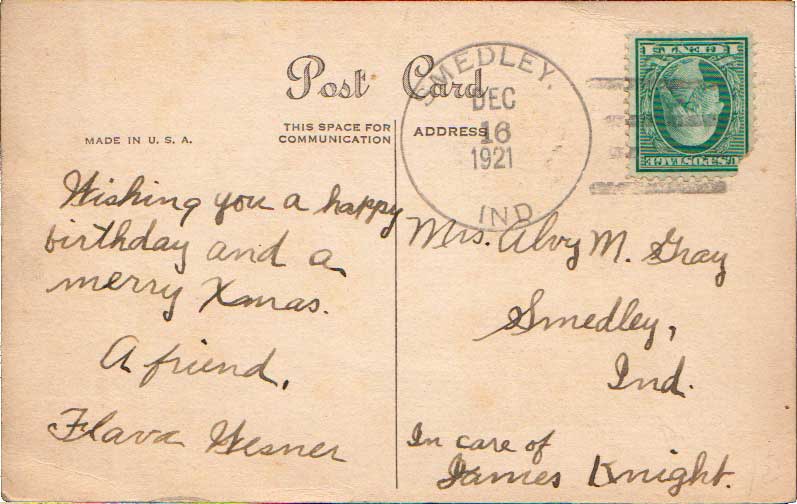 Post Card
MADE IN U. S. A.
THIS SPACE FOR
COMMUNICATION
ADDRESS
SMEDLEY,
DEC
16
1921
IND
U.S. POSTAGE
Wishing you a happy
birthday and a
merry Xmas.
A friend,
Flava Wesner
Mrs. Alvy M. Gray
Smedley,
Ind.
In care of
James Knight.